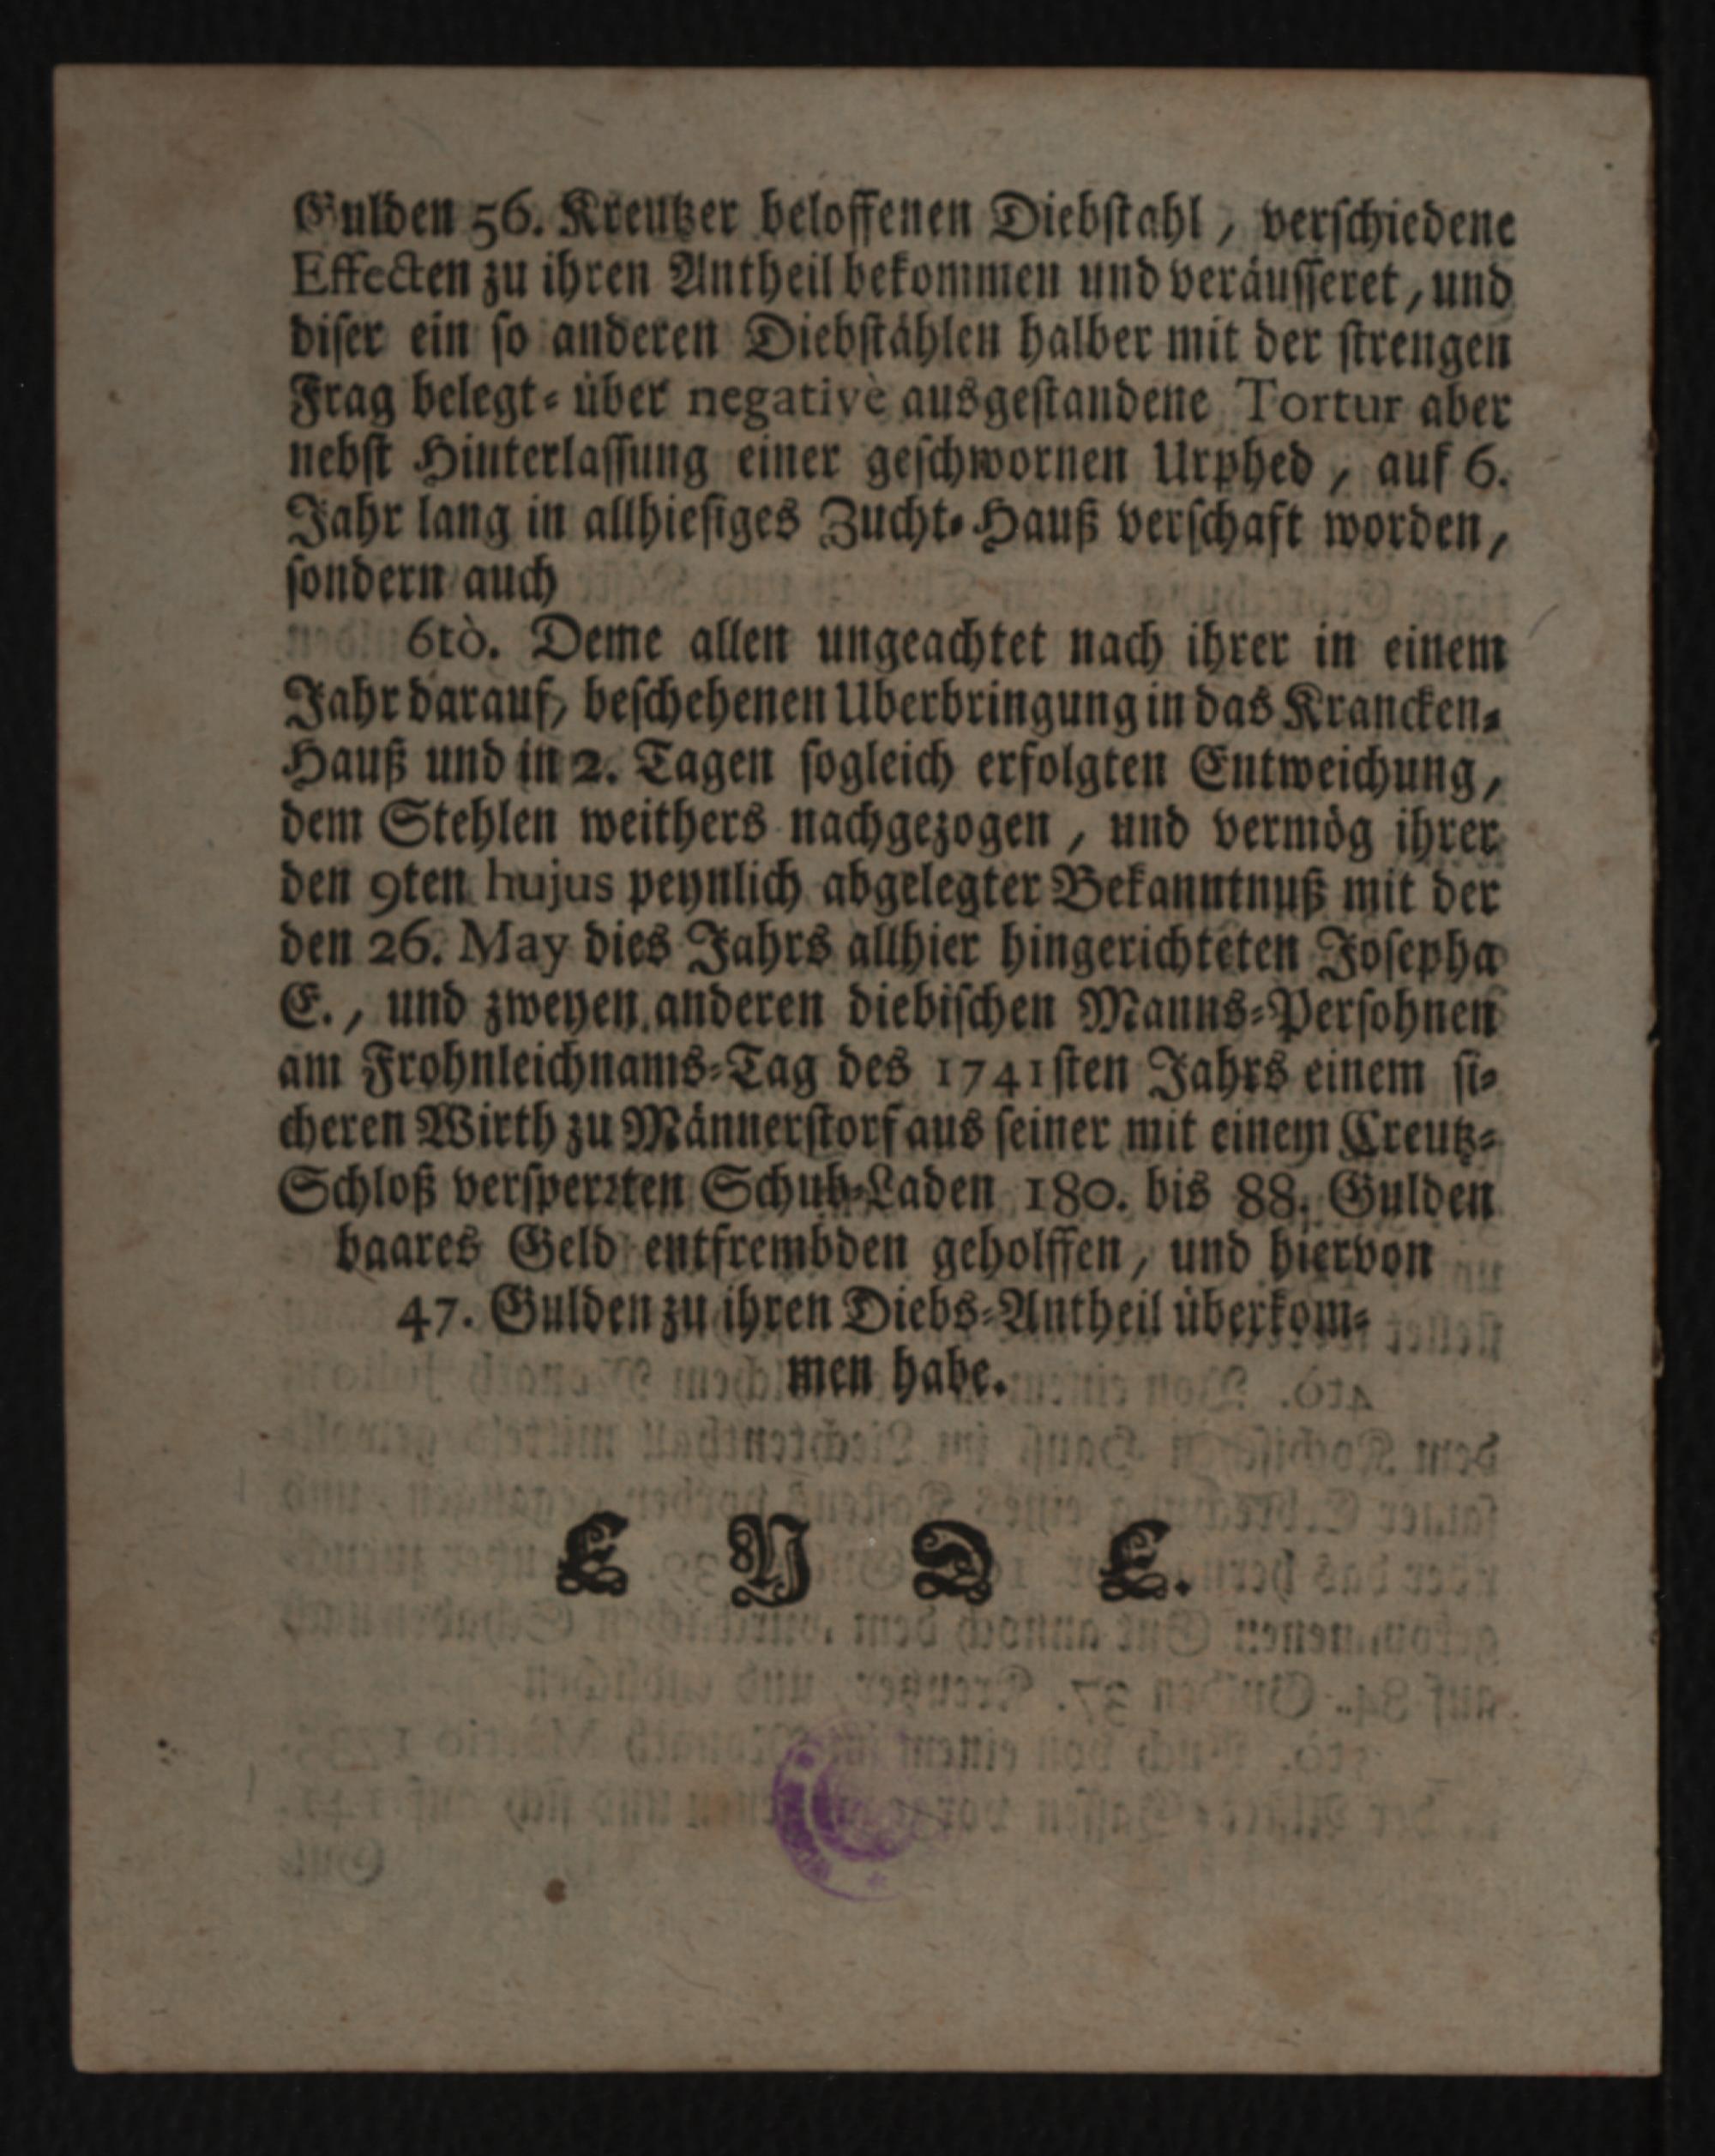 Gulden 56. Kreutzer beloffenen Diebstahl, verschiedene
Effecten zu ihren Antheil bekommen und veräusseret, und
diser ein so anderen Diebstählen halber mit der strengen
Frag belegt- über negativè ausgestandene Tortur aber
nebst Hinterlassung einer geschwornen Urphed, auf 6.
Jahr lang in allhiesiges Zucht-Hauß verschaft worden,
sondern auch
6tò. Deme allen ungeachtet nach ihrer in einem
Jahr darauf, beschehenen Uberbringung in das Krancken-
Hauß und in 2. Tagen sogleich erfolgten Entweichung,
dem Stehlen weithers nachgezogen, und vermög ihrer
den 9ten hujus peynlich abgelegter Bekanntnuß mit der
den 26. May dies Jahrs allhier hingerichteten Josepha
E., und zweyen anderen diebischen Manns-Persohnen
am Frohnleichnams-Tag des 1741sten Jahrs einem si-
cheren Wirth zu Männerstorf aus seiner mit einem Creutz-
Schloß versperrten Schub-Laden 180. bis 88. Gulden
baares Geld entfrembden geholffen, und hiervon
47. Gulden zu ihren Diebs-Antheil überkom-
men habe.
E N D E.